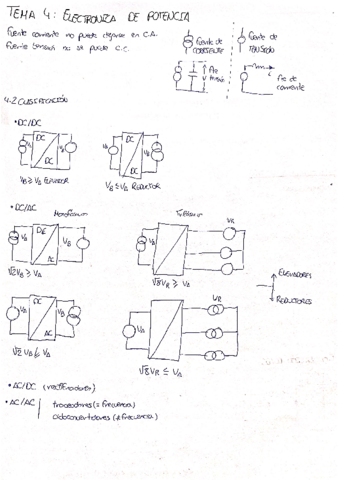 TEMA 4: ELECTRONICA DE POTENCIA
Fuente corriente no puede dejarse en C.A.
Fuente tensión no se puede C.C.
Fuente de CORRIENTE
Fuente de TENSIÓN
Fte tensión
Fte de corriente
4.2 CLASIFICACIÓN
• DC/DC
DC DC VB
DC DC VB
VB ≥ VA ELEVADOR
VB ≤ VA REDUCTOR
• DC/AC
Monofásico
Trifásico
VR
AC VB
√2 VB ≥ VA
√8 VR ≥ VA
ELEVADORES
REDUCTORES
VA DC AC VB
VA
VR
√2 VB ≤ VA
√8 VR ≤ VA
• AC/DC (rectificadores)
• AC/AC troceadores (= frecuencia)
cicloconvertidores (≠ frecuencia)